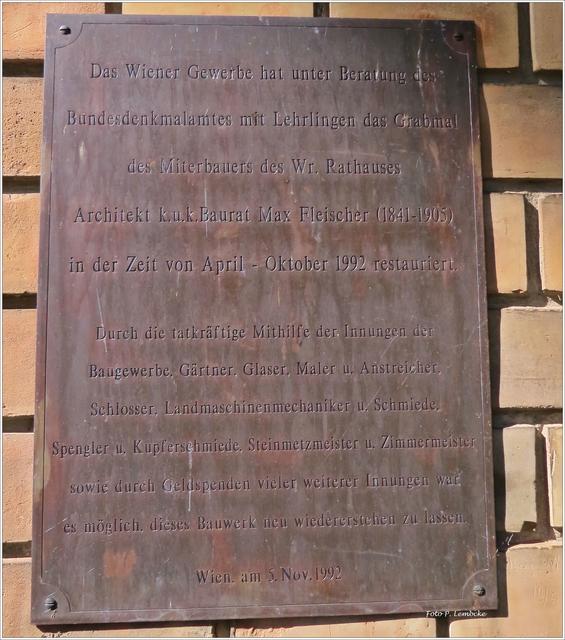 Das Wiener Gewerbe hat unter Beratung des
Bundesdenkmalamtes mit Lehrlingen das Grabmal
des Miterbauers des Wr. Rathauses
Architekt k.u.k.Baurat Max Fleischer (1841-1905)
in der Zeit von April - Oktober 1992 restauriert.
Durch die tatkräftige Mithilfe der Innungen der
Baugewerbe, Gärtner, Glaser, Maler u. Anstreicher,
Schlosser, Landmaschinenmechaniker u. Schmiede,
Spengler u. Kupferschmiede, Steinmetzmeister u. Zimmermeister
sowie durch Geldspenden vieler weiterer Innungen war
es möglich, dieses Bauwerk neu wiedererstehen zu lassen.
Wien, am 5. Nov. 1992
Foto P. Lembcke